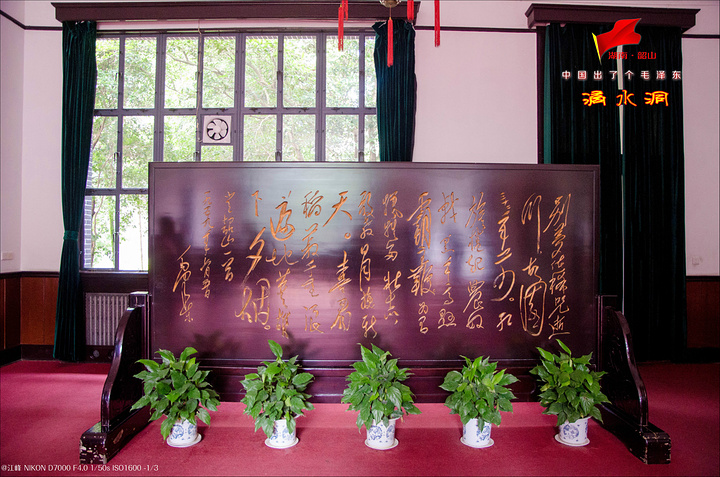 湖南·韶山
中国出了个毛泽东
滴水洞
别梦依稀咒逝
川。故园
三十二年前。红
旗卷起农奴
戟 黑手高悬
霸主鞭 为有
牺牲多壮志
敢教日月换新
天。喜看
稻菽千重浪
遍地英雄
下夕烟
毛泽东
@江峰 NIKON D7000 F4.0 1/50s ISO1600 -1/3